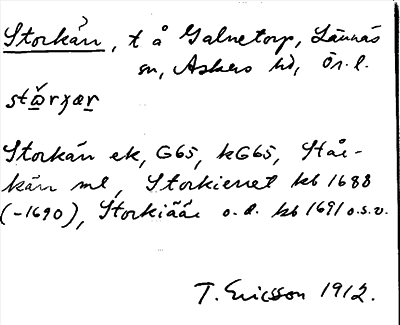 Storkån, t å Galnetorp, Lännäs
sn, Askers hd, Ör. l.
Storkån ek, G65, kG65, Ståe-
kån ml, Storkienet kb 1688
(-1690), Storkiååe o.d. kb 1691 o.s.v.
T. Ericsson 1912.